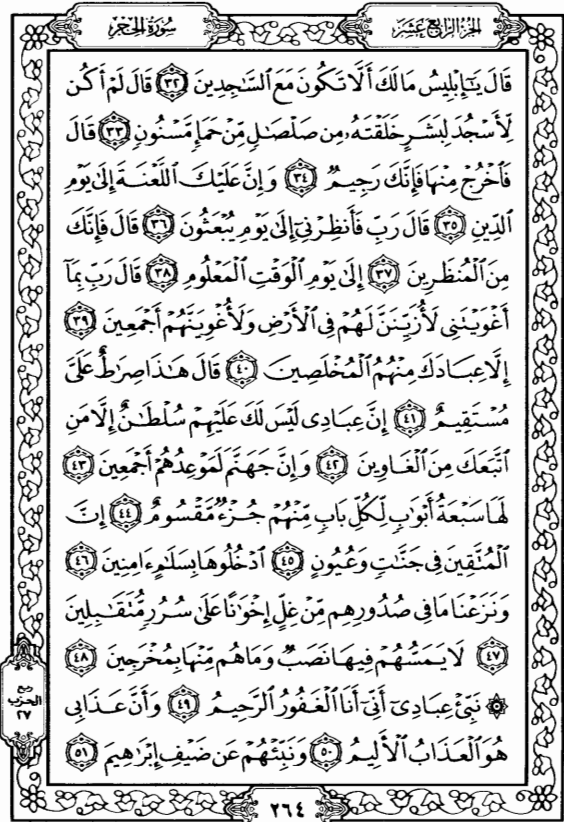 سُورَةُ الحِجْرِ
الجُزْءُ الرَّابِعَ عَشَرَ
قَالَ يَـٰٓإِبْلِيسُ مَا لَكَ أَلَّا تَكُونَ مَعَ ٱلسَّـٰجِدِينَ ٣٢ قَالَ لَمْ أَكُن
لِّأَسْجُدَ لِبَشَرٍ خَلَقْتَهُۥ مِن صَلْصَـٰلٍ مِّنْ حَمَإٍ مَّسْنُونٍ ٣٣ قَالَ
فَٱخْرُجْ مِنْهَا فَإِنَّكَ رَجِيمٌ ٣٤ وَإِنَّ عَلَيْكَ ٱللَّعْنَةَ إِلَىٰ يَوْمِ
ٱلدِّينِ ٣٥ قَالَ رَبِّ فَأَنظِرْنِىٓ إِلَىٰ يَوْمِ يُبْعَثُونَ ٣٦ قَالَ فَإِنَّكَ
مِنَ ٱلْمُنظَرِينَ ٣٧ إِلَىٰ يَوْمِ ٱلْوَقْتِ ٱلْمَعْلُومِ ٣٨ قَالَ رَبِّ بِمَآ
أَغْوَيْتَنِى لَأُزَيِّنَنَّ لَهُمْ فِى ٱلْأَرْضِ وَلَأُغْوِيَنَّهُمْ أَجْمَعِينَ ٣٩
إِلَّا عِبَادَكَ مِنْهُمُ ٱلْمُخْلَصِينَ ٤٠ قَالَ هَـٰذَا صِرَٰطٌ عَلَىَّ
مُسْتَقِيمٌ ٤١ إِنَّ عِبَادِى لَيْسَ لَكَ عَلَيْهِمْ سُلْطَـٰنٌ إِلَّا مَنِ
ٱتَّبَعَكَ مِنَ ٱلْغَاوِينَ ٤٢ وَإِنَّ جَهَنَّمَ لَمَوْعِدُهُمْ أَجْمَعِينَ ٤٣
لَهَا سَبْعَةُ أَبْوَٰبٍ لِّكُلِّ بَابٍ مِّنْهُمْ جُزْءٌ مَّقْسُومٌ ٤٤ إِنَّ
ٱلْمُتَّقِينَ فِى جَنَّـٰتٍ وَعُيُونٍ ٤٥ ٱدْخُلُوهَا بِسَلَـٰمٍ ءَامِنِينَ ٤٦
وَنَزَعْنَا مَا فِى صُدُورِهِم مِّنْ غِلٍّ إِخْوَٰنًا عَلَىٰ سُرُرٍ مُّتَقَـٰبِلِينَ
٤٧ لَا يَمَسُّهُمْ فِيهَا نَصَبٌ وَمَا هُم مِّنْهَا بِمُخْرَجِينَ ٤٨
۞ نَبِّئْ عِبَادِىٓ أَنِّىٓ أَنَا ٱلْغَفُورُ ٱلرَّحِيمُ ٤٩ وَأَنَّ عَذَابِى
هُوَ ٱلْعَذَابُ ٱلْأَلِيمُ ٥٠ وَنَبِّئْهُمْ عَن ضَيْفِ إِبْرَٰهِيمَ ٥١
ربع
الحزب
٢٧
٢٦٤